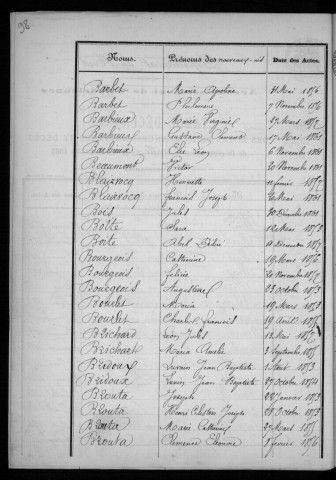 Noms. Prénoms des nouveaux-nés Date des Actes.
Barbet Marie Apoline 31 Mai 1876
Barbet Philomène 7 Novembre 1876
Barbieux Marie Virginie 17 Mars 1875
Barbieux Gustave 17 Mai
Barbieux Elie Léon 6 Novembre 1881
Beaumont Victor 20 Novembre
Blairvacq Henriette Janvier
Blairvacq François Joseph 20 Mai 1881
Bois Jules 30 Décembre 1881
Boîte Sara 12 Mai 1873
Boîte Abel Désiré Décembre
Bourgeois Catherine 19 Mars 1876
Bourgeois Félicie 20 Novembre
Bourgeois Angustine 23 Octobre 1873
Bourlet Maria 19 Mars 1873
Bourlet Charles François 19 Avril
Brichard Léon Jules 13 Mai
Brichart Maria Amélie 3 Septembre
Bridoux Jean Baptiste Août 1873
Bridoux Louis Jean Baptiste 27 Octobre 1874
Brouta Joseph 22 Janvier 1873
Brouta Henri Célestin Joseph 25 Octobre 1873
Brouta Marie Catherine 27 Mars
Brouta Clémence Eléonore 3 Février 1876